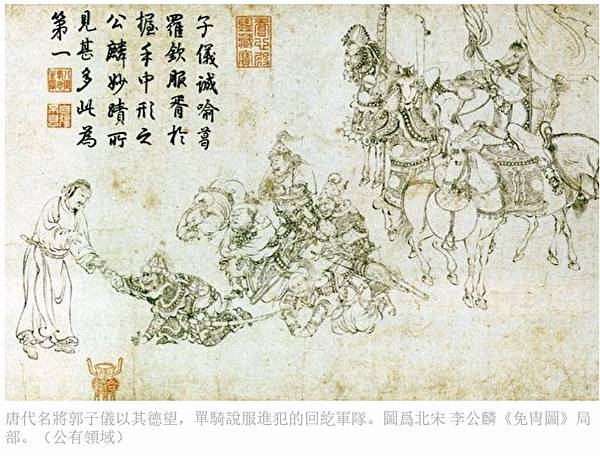 子儀誠喻葛
羅欽服胥於
握手中形之
公麟妙蹟所
見甚多此為
第一
唐代名將郭子儀以其德望，單騎說服進犯的回紇軍隊。圖爲北宋 李公麟《免冑圖》局
部。（公有領域）